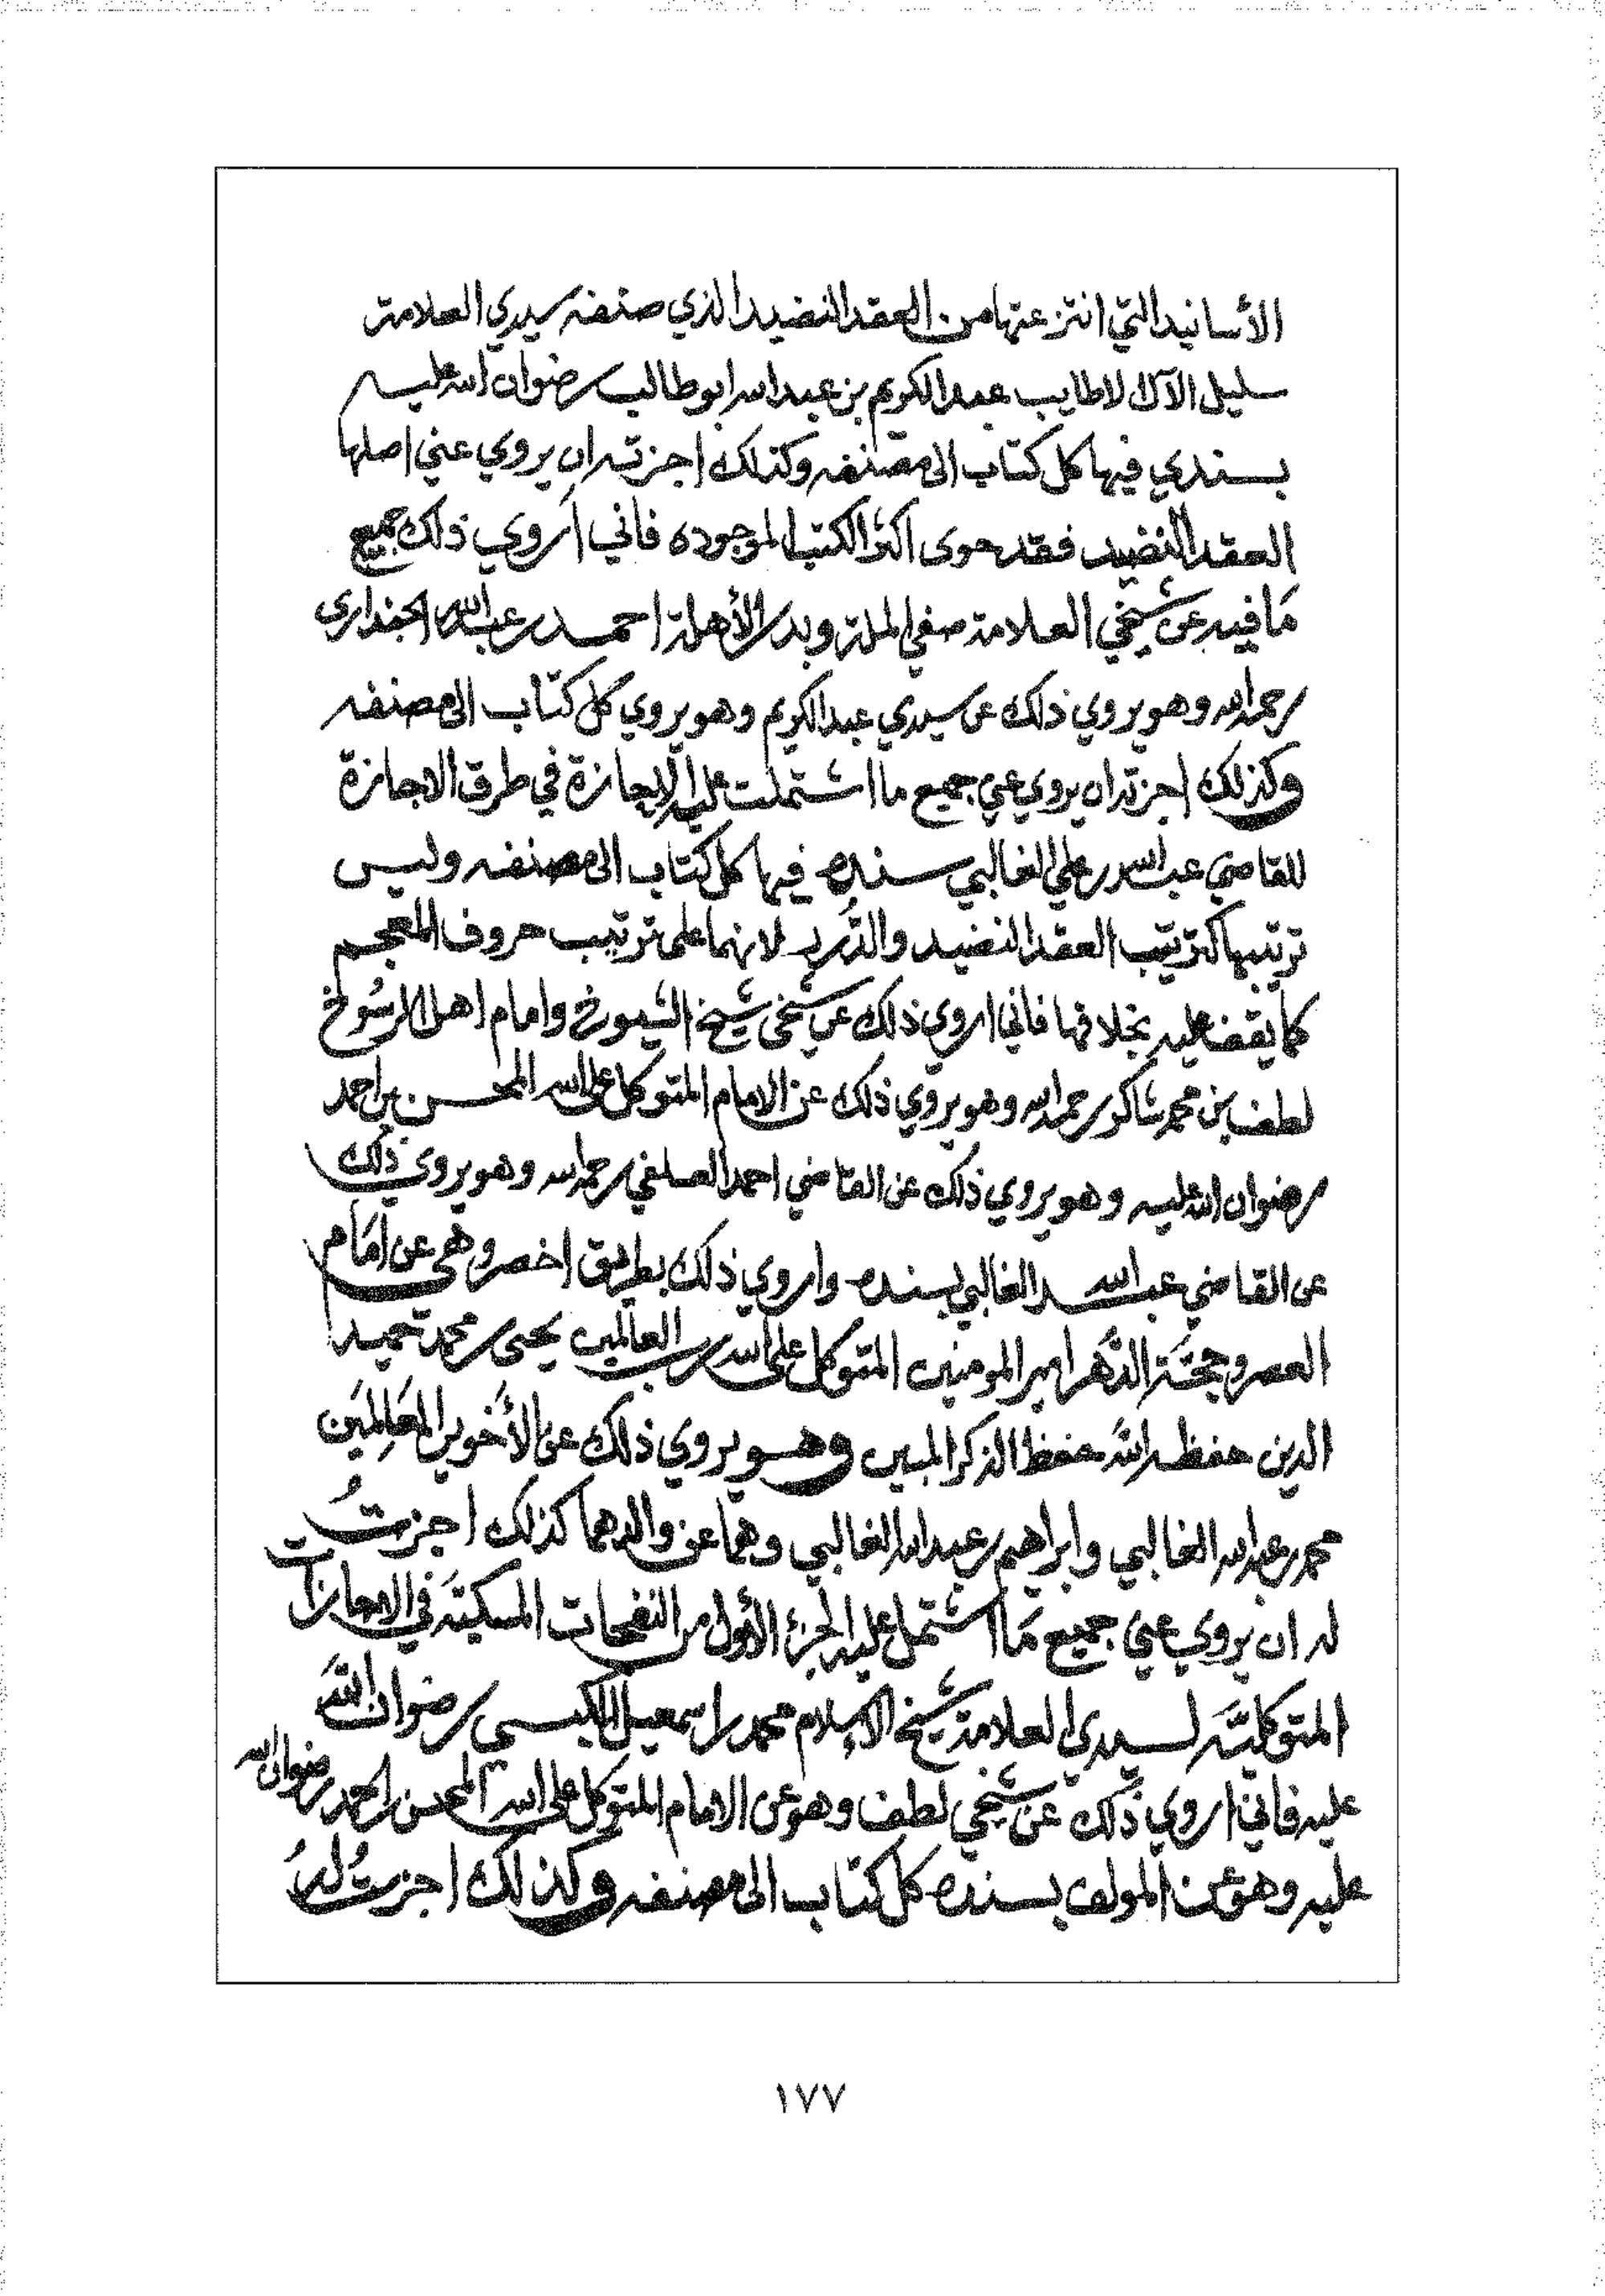 الأسانيد التي انتزعتها من العقد النضيد الذي صنفه سيدي العلامة
سليل الآل الاطايب عبد الكريم بن عبد الله ابو طالب رضوان الله عليه
بسندي فيها كل كتاب الى مصنفه وكذلك اجزته ان يروي عني اصلها
العقد النضيد فقد حوى اكثر الكتب الموجوده فاني أروي ذلك جميع
مَا فيه عن شيخي العلامة صفي الملة وبدر الأهلة احمد بن عبد الله الجنداري
رحمه الله وهو يروي ذلك عن سيدي عبد الكريم وهو يروي كل كتاب الى مصنفه
وكذلك اجزته ان يروي عني جميع ما اشتملت عليه الإجازة في طرق الاجازة
للقاضي عبد الله بن علي الغالبي سنده فيها كل كتاب الى مصنفه وليس
ترتيبها كترتيب العقد النضيد والدُّرر لانهما على ترتيب حروف المعجم
كما يقضى عليه بخلافها فاني اروي ذلك عن شيخي شيخ الشيوخ وامام اهل الرسُوخ
لطف بن محمد شاكر رحمه الله وهو يروي ذلك عن الامام المتوكل على الله المحسن بن احمد
رضوان الله عليه وهو يروي ذلك عن القاضي احمد العلفي رحمه الله وهو يروي ذلك
عن القاضي عبد الله الغالبي بسنده واروي ذلك بطريق اخصر وهي عن امَام
العصر وحجَّة الدَّهر امير المومنين المتوكل على الله رب العالمين يحيى بن محمد حميد
الدين حفظه اللهُ حفظ الذكر المبين وهو يروي ذلك عن الأَخوين العَالِمَين
محمد بن عبد الله الغالبي وابراهيم بن عبد الله الغالبي وهما عن والدهما كذلك اجزتُ
له ان يروي عني جميع مَا اشتمل عليه الجزء الأول من النفحات المسكيَّه في الاجازات
المتوكليَّه لسيدي العلامة شيخ الإسلام محمد بن اسمعيل الكبسي رضوان اللهَ
عليه فاني اروي ذلك عن شيخي لطف وهو عن الامام المتوكل على الله المحسن بن احمد رضوان الله
عليه وهو عن المولف بسنده كل كتاب الى مصنفه وكذلك اجزتُ لهُ
١٧٧